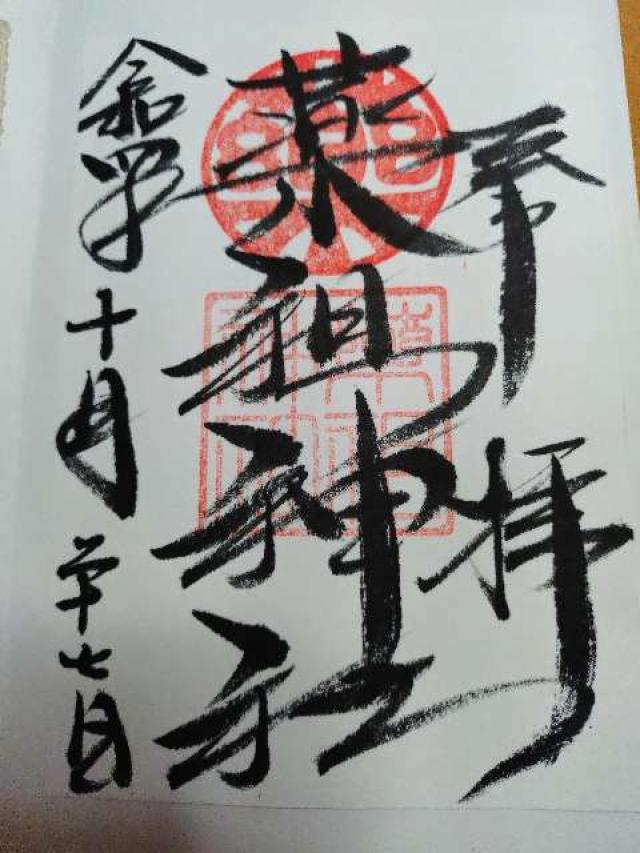 奉拝
薬祖神社
令和四年十月二十七日